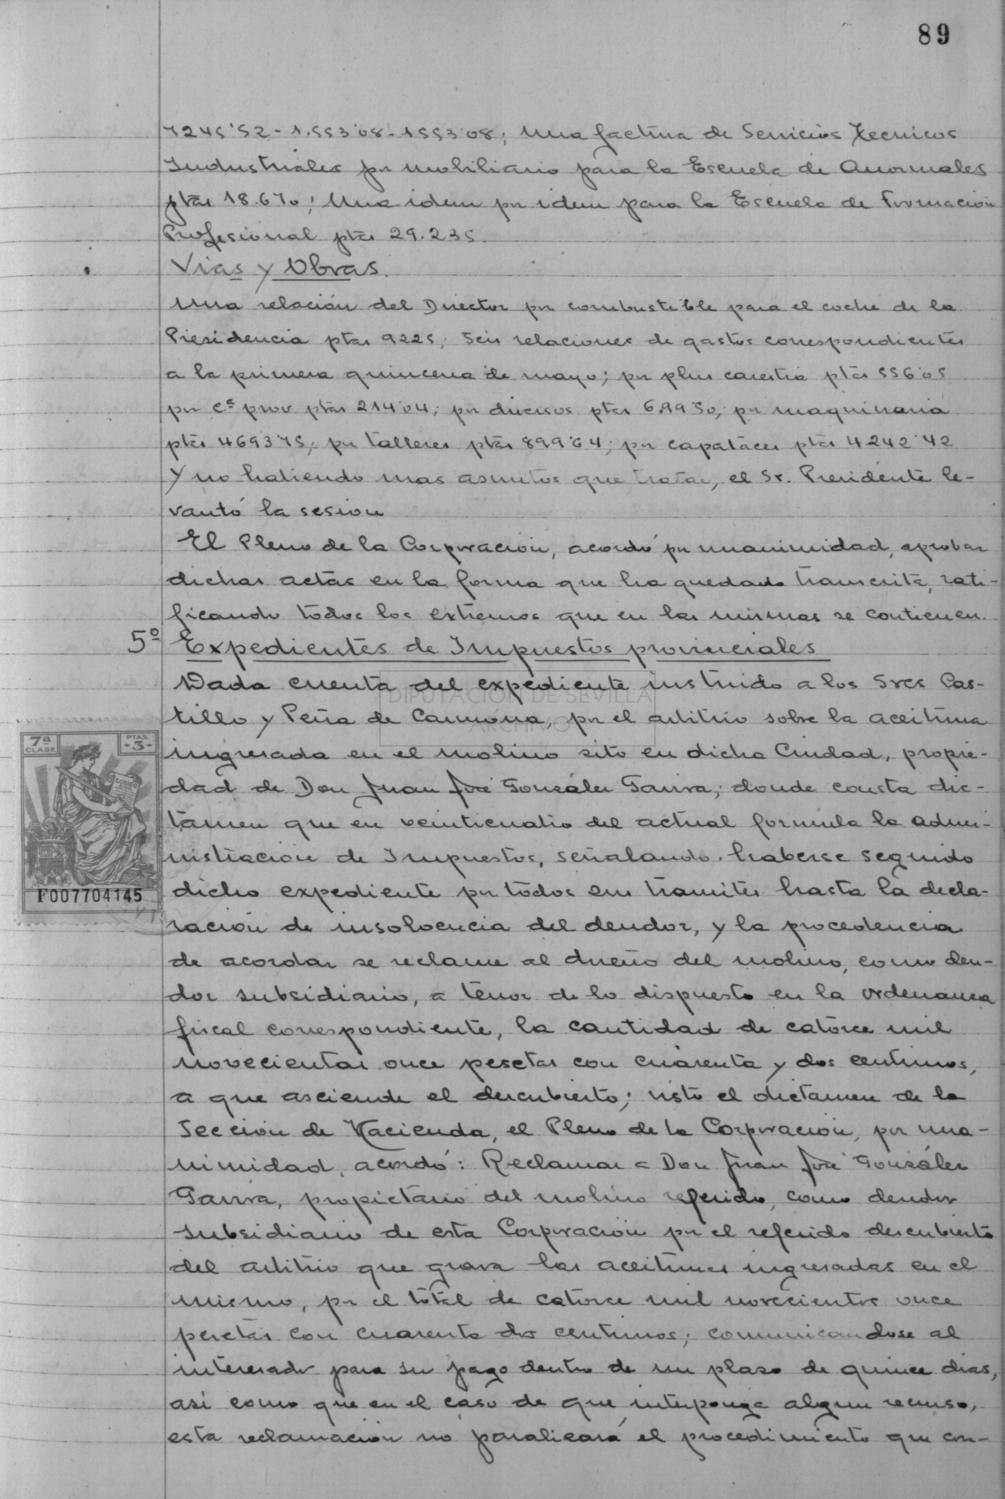 89
7245'52 - 1.553'08 - 1553'08; Una factura de Servicios Tecnicos
Industriales por mobiliario para la Escuela de Anormales
ptas 18.670; Una idem por idem para la Escuela de Formación
Profesional ptas 29.235.
Vias y Obras.
Una relación del Director por combustible para el coche de la
Presidencia ptas 9225; Seis relaciones de gastos correspondientes
a la primera quincena de mayo; por plus carestia ptas 556'05
por Cs prov ptas 214'04; por diversos ptas 6,99'50; por maquinaria
ptas 4693'75; por talleres ptas 899'64; por capataces ptas 4242'42
Y no habiendo mas asuntos que tratar, el Sr. Presidente le-
vantó la sesion
El Pleno de la Corporación, acordó por unanimidad, aprobar
dichas actas en la forma que ha quedado transcrita, rati-
ficando todos los extremos que en las mismas se contienen.
5º Expedientes de Impuestos provinciales
Dada cuenta del expediente instruido a los Sres Cas-
tillo y Peña de Carmona, por el arbitrio sobre la aceituna
ingresada en el molino sito en dicha Ciudad, propie-
dad de Don Juan José González Parira; donde consta dic-
tamen que en veinticuatro del actual formula la admi-
nistración de Impuestos, señalando haberse seguido
dicho expediente por todos sus tramites hasta la decla-
ración de insolvencia del deudor, y la procedencia
de acordar se reclame al dueño del molino, como deu-
dor subsidiario, a tenor de lo dispuesto en la ordenanza
fiscal correspondiente, la cantidad de catorce mil
novecientas once pesetas con cuarenta y dos centimos,
a que asciende el descubierto; visto el dictamen de la
Sección de Hacienda, el Pleno de la Corporación, por una-
nimidad, acordó: Reclamar a Don Juan José González
Parira, propietario del molino referido, como deudor
subsidiario de esta Corporación por el referido descubierto
del arbitrio que grava las aceitunas ingresadas en el
mismo, por el total de catorce mil novecientas once
pesetas con cuarenta dos centimos; comunicandose al
interesado para su pago dentro de un plazo de quince dias,
asi como que en el caso de que interponga algun recurso,
esta reclamación no paralizará el procedimiento que con-
DIPUTACIÓN DE SEVILLA
ARCHIVO
7ª CLASE
PTAS. -3-
F007704145